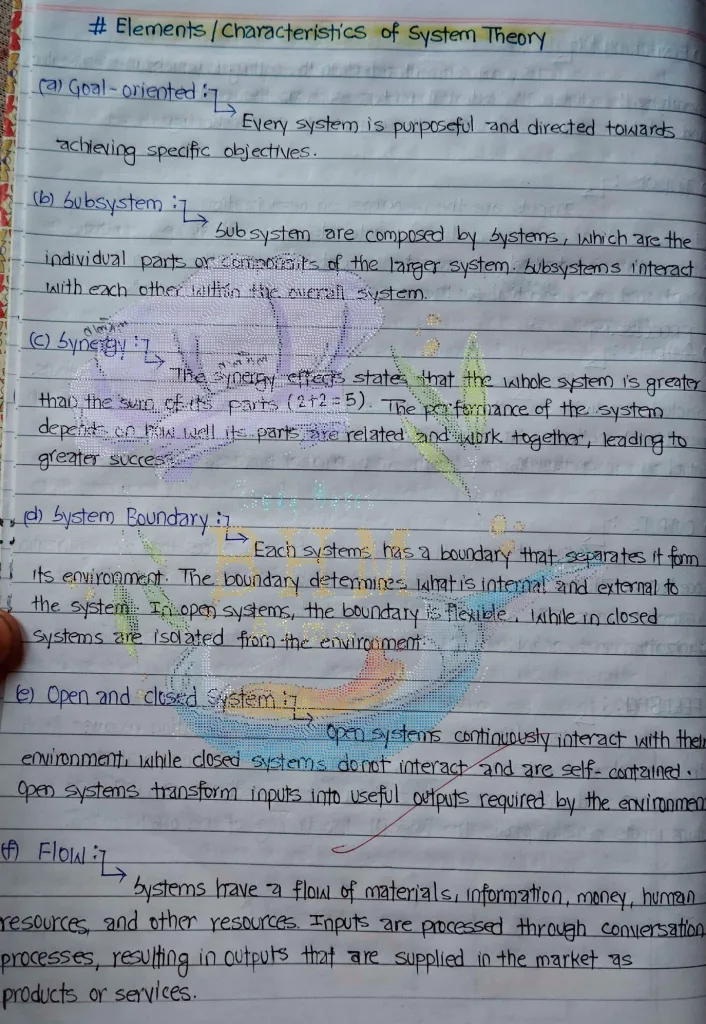 # Elements/Characteristics of System Theory
(a) Goal-oriented :
Every system is purposeful and directed towards
achieving specific objectives.
(b) Subsystem :
Sub system are composed by systems, which are the
individual parts or components of the larger system. Subsystems interact
with each other within the overall system.
(c) Synergy :
The synergy effects states that the whole system is greater
than the sum of its parts (2+2=5). The performance of the system
depends on how well its parts are related and work together, leading to
greater success.
(d) System Boundary :
Each systems has a boundary that separates it form
its environment. The boundary determines what is internal and external to
the system. In open systems, the boundary is flexible, while in closed
systems are isolated from the environment.
BHM
(e) Open and closed System :
Open systems continuously interact with their
environment, while closed systems donot interact and are self-contained.
Open systems transform inputs into useful outputs required by the environmen
(f) Flow :
Systems have a flow of materials, information, money, human
resources, and other resources. Inputs are processed through conversation
processes, resulting in outputs that are supplied in the market as
products or services.